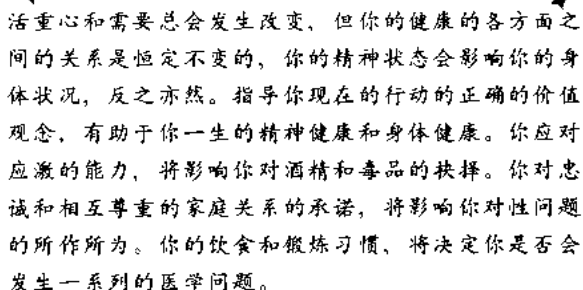 活重心和需要总会发生改变，但你的健康的各方面之
间的关系是恒定不变的，你的精神状态会影响你的身
体状况，反之亦然。指导你现在的行动的正确的价值
观念，有助于你一生的精神健康和身体健康。你应对
应激的能力，将影响你对酒精和毒品的抉择。你对忠
诚和相互尊重的家庭关系的承诺，将影响你对性问题
的所作所为。你的饮食和锻炼习惯，将决定你是否会
发生一系列的医学问题。